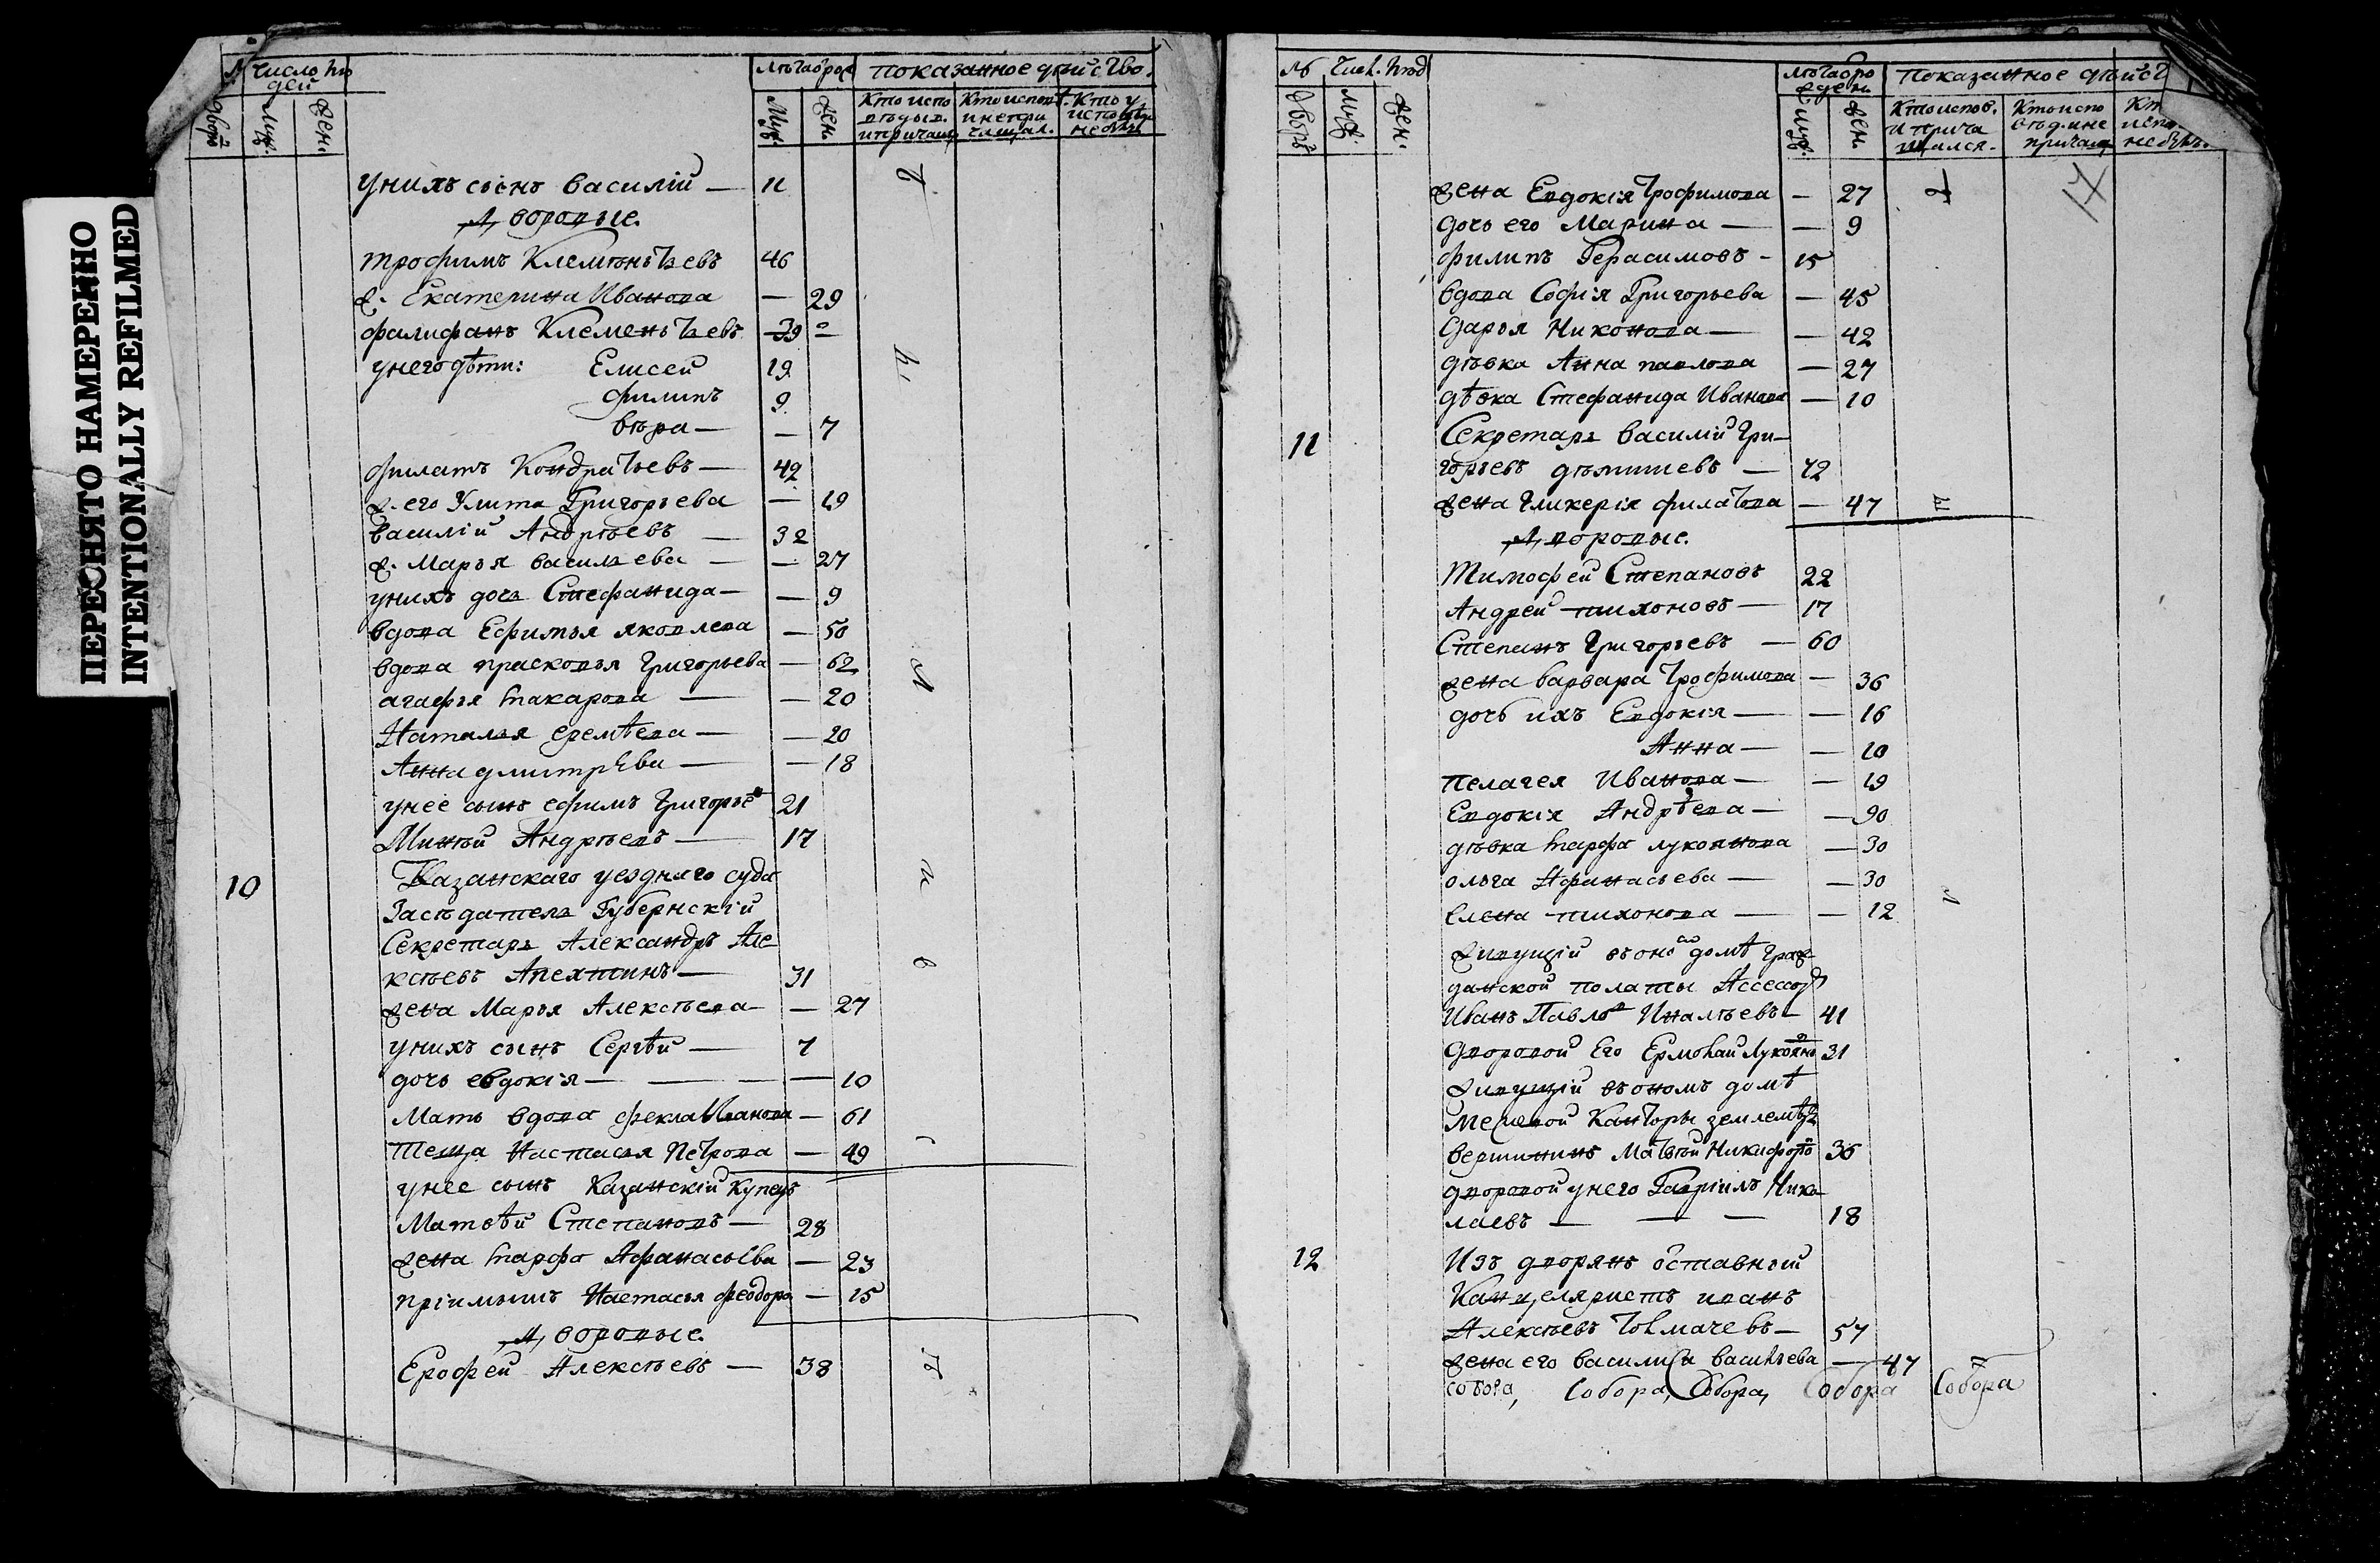 ПЕРЕСНЯТО НАМЕРЕННО
INTENTIONALLY REFILMED
№ Число лю
дей
Лѣтаброж
показанное дѣйство.
дворъ
муж.
жен.
Муж.
жен.
Кто испо
вѣдыв.
ипричащ
Кто испов.
инепри
чащал.
Кто у
исповѣди
небылъ
унихъ сынъ василій — 11
Дворовые.
трофимъ Клементьевъ 46
ж. Екатерина Иванова — 29
фалифанъ Клементьевъ 39 —
унего дѣти: Елисей 19
филипъ 9
вѣра — — 7
филатъ Кондратьевъ — 42
ж. его Улита Григорьева — 19
василій Андрѣевъ — 32
ж. Марья васильева — — 27
унихъ дочь Стефанида — — 9
вдова Ефимья яковлева — 50
вдова прасковья Григорьева — 62
агафья макарова — — 20
Наталья еремѣева — — 20
Анна дмитрева — — 18
унее сынъ ефимъ Григорье 21
Минѣй Андрѣевъ — 17
10 Казанскаго уезднаго суда
Засѣдатель Губернскій
Секретарь Александръ Але
ксѣевъ Апехтинъ — 31
жена Марья Алексѣева — — 27
унихъ сынъ Сергѣй — 7
дочь евдокія — — — — 10
Мать вдова фекла Иванова — 61
Теща Настасья Петрова — 49
унее сынъ Казанскій Купецъ
Матвѣй Степановъ — 28
жена марфа Афанасьева — 23
пріимышъ Настасья феодора — 15
Дворовые.
Ерофей Алексѣевъ — 38
№ Числ. люд
Дворъ
муж.
жен.
лѣтабро
жден.
муж.
жен.
Показанное дѣйст
Кто испов.
и прича
щался.
Кто испо
вѣд. ине
причащ
Кт
испо
небылъ.
17
жена Евдокія Трофимова — 27
дочь его Марина — — 9
филипъ Герасимовъ — 15
вдова Софія Григорьева — 45
Дарья Никонова — — 42
дѣвка Анна павлова — 27
дѣвка Стефанида Иванова — 10
11 Секретарь василій Гри-
горьевъ — 72
жена Гликерія филатова — 47
Дворовые.
Тимофей Степановъ 22
Андрей тихоновъ — 17
Степанъ Григорьевъ — 60
жена варвара Трофимова — 36
дочь ихъ Евдокія — — 16
Анна — — 10
пелагея Иванова — — 19
Евдокія Андрѣева — — 90
дѣвка марфа лукоянова — 30
ольга Афанасьева — — 30
Елена тихонова — — 12
Живущій въ оном домѣ Граж-
данской полаты Ассессор
Иванъ Павло Игнатьевъ — 41
дворовой Его Ермолай Лукояно 31
живущій въ ономъ домѣ
межевой Канторы землемѣр
вершининъ Матвѣй Никифоро 36
дворовой унего Гавріилъ Нико
лаевъ — — — 18
12 Изъ дворянъ отставный
Канцеляристъ иванъ
Алексѣевъ Толмачевъ — 57
жена его василиса васильева — 47
собора, Собора, Собора, Собора Собора